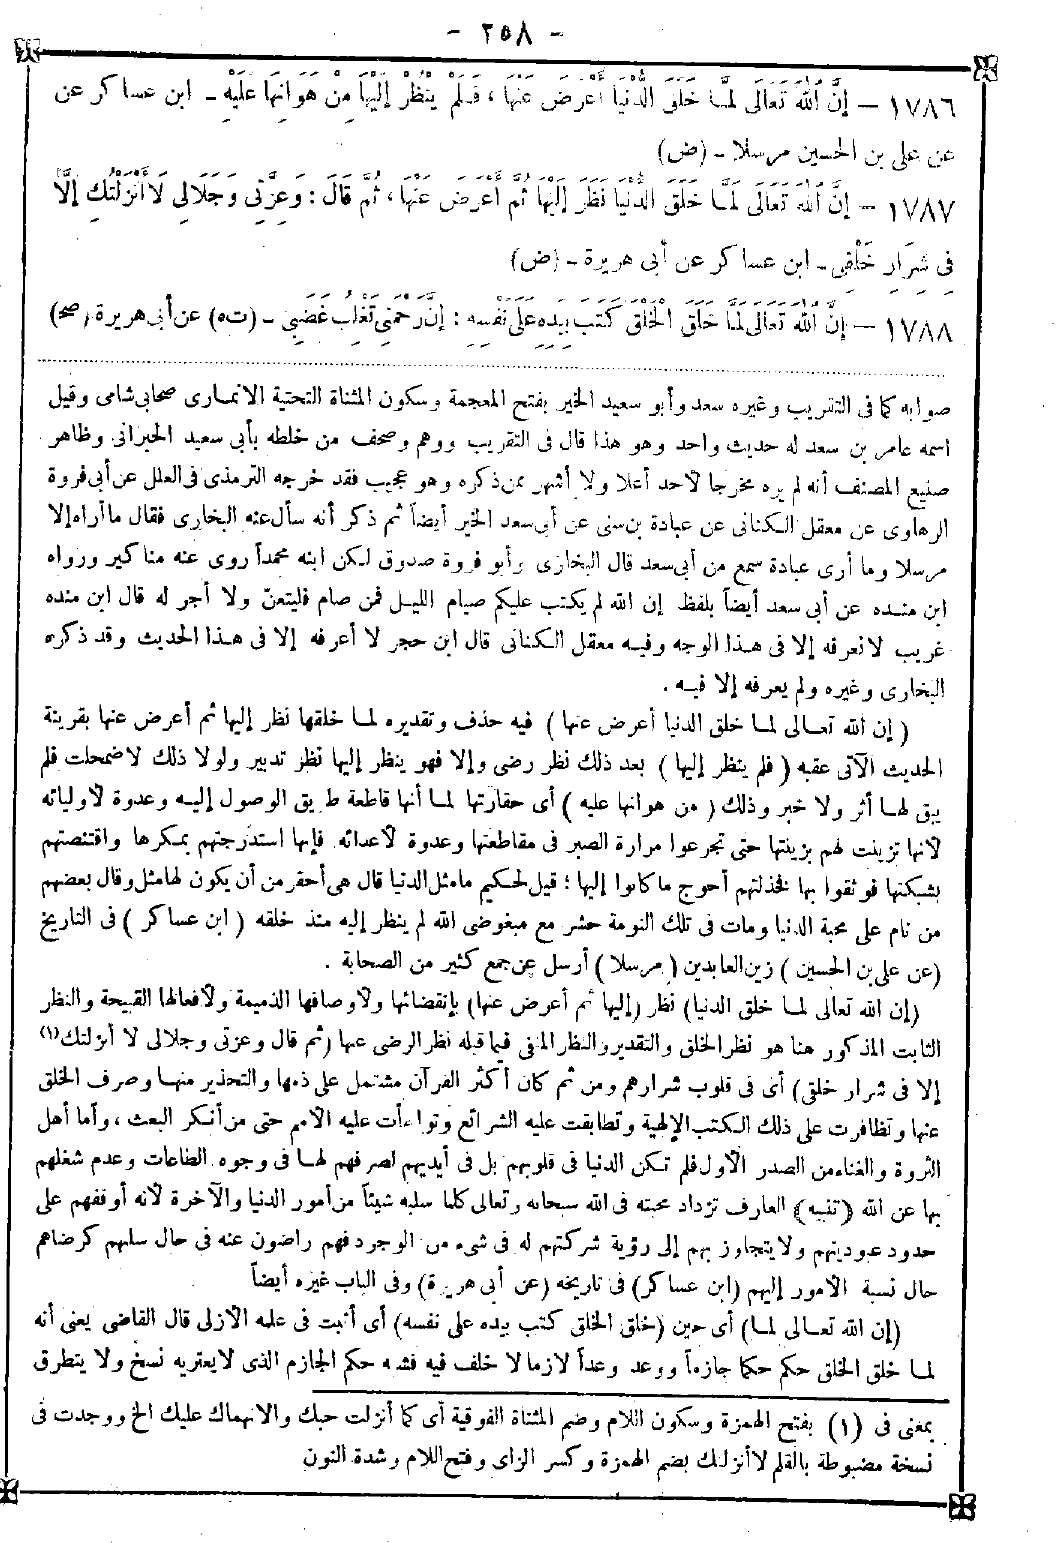 - ٢٥٨ -
١٧٨٦ - إِنَّ اللهَ تَعَالَى لَمَّا خَلَقَ الدُّنْيَا أَعْرَضَ عَنْهَا، فَلَمْ يَنْظُرْ إِلَيْهَا مِنْ هَوَانِهَا عَلَيْهِ - ابن عساكر عن
عن على بن الحسين مرسلا - (ض)
١٧٨٧ - إِنَّ اللهَ تَعَالَى لَمَّا خَلَقَ الدُّنْيَا نَظَرَ إِلَيْهَا ثُمَّ أَعْرَضَ عَنْهَا، ثُمَّ قَالَ: وَعِزَّتِى وَجَلَالِى لَا أَنْزَلْتُكِ إِلَّا
فِى شِرَارِ خَلْقِى - ابن عساكر عن أبى هريرة - (ض)
١٧٨٨ - إِنَّ اللهَ تَعَالَى لَمَّا خَلَقَ الْخَلْقَ كَتَبَ بِيَدِهِ عَلَى نَفْسِهِ: إِنَّ رَحْمَتِى تَغْلِبُ غَضَبِى - (ت ه) عن أبى هريرة (صح)
صوابه كما فى التقريب وغيره سعد وأبو سعيد الخير بفتح المعجمة وسكون المثناة التحتية الانمارى صحابى شامى وقيل
اسمه عامر بن سعد له حديث واحد وهو هذا قال فى التقريب ووهم وصحف من خلطه بأبى سعيد الحبرانى وظاهر
صنيع المصنف أنه لم يره مخرجا لأحد أعلا ولا أشهر ممن ذكره وهو عجيب فقد خرجه الترمذى فى العلل عن أبى فروة
الرهاوى عن معقل الكنانى عن عبادة بن سنى عن أبى سعد الخير أيضاً ثم ذكر أنه سأل عنه البخارى فقال ما أراه إلا
مرسلا وما أرى عبادة سمع من أبى سعد قال البخارى وأبو فروة صدوق لكن ابنه محمداً روى عنه مناكير ورواه
ابن منده عن أبى سعد أيضاً بلفظ إن الله لم يكتب عليكم صيام الليل فمن صام فليتعنّ ولا أجر له قال ابن منده
غريب لا نعرفه إلا فى هذا الوجه وفيه معقل الكنانى قال ابن حجر لا أعرفه إلا فى هذا الحديث وقد ذكره
البخارى وغيره ولم يعرفه إلا فيه .
( إن الله تعالى لما خلق الدنيا أعرض عنها ) فيه حذف وتقديره لما خلقها نظر إليها ثم أعرض عنها بقرينة
الحديث الآتى عقبه ( فلم ينظر إليها ) بعد ذلك نظر رضى وإلا فهو ينظر إليها نظر تدبير ولولا ذلك لاضمحلت فلم
يبق لها أثر ولا خبر وذلك ( من هوانها عليه ) أى حقارتها لما أنها قاطعة طريق الوصول إليه وعدوة لأوليائه
لأنها تزينت لهم بزينتها حتى تجرعوا مرارة الصبر فى مقاطعتها وعدوة لأعدائه فإنها استدرجتهم بمكرها واقتنصتهم
بشبكتها فوثقوا بها فخذلتهم أحوج ما كانوا إليها ؛ قيل لحكيم ما مثل الدنيا قال هى أحقر من أن يكون لها مثل وقال بعضهم
من نام على محبة الدنيا ومات فى تلك النومة حشر مع مبغوضى الله لم ينظر إليه منذ خلقه ( ابن عساكر ) فى التاريخ
(عن على بن الحسين ) زين العابدين ( مرسلا ) أرسل عن جمع كثير من الصحابة .
(إن الله تعالى لما خلق الدنيا) نظر (إليها ثم أعرض عنها) بإنقضائها ولاوصافها الذميمة ولأفعالها القبيحة والنظر
الثابت المذكور هنا هو نظر الخلق والتقدير والنظر المنفى فيما قبله نظر الرضى عنها (ثم قال وعزتى وجلالى لا أنزلتك(١)
إلا فى شرار خلقى) أى فى قلوب شرارهم ومن ثم كان أكثر القرآن مشتمل على ذمها والتحذير منها وصرف الخلق
عنها وتظافرت على ذلك الكتب الإلهية وتطابقت عليه الشرائع وتواءأت عليه الأمم حتى من أنكر البعث ، وأما أهل
الثروة والغناء من الصدر الأول فلم تكن الدنيا فى قلوبهم بل فى أيديهم لصرفهم لها فى وجوه الطاعات وعدم شغلهم
بها عن الله (تنبيه) العارف تزداد محبته فى الله سبحانه وتعالى كلما سلبه شيئاً من أمور الدنيا والآخرة لأنه أوقفهم على
حدود عبوديتهم ولا يتجاوز بهم إلى رؤية شركتهم له فى شىء من الوجود فهم راضون عنه فى حال سلبهم كرضاهم
حال نسبة الأمور إليهم (ابن عساكر) فى تاريخه (عن أبى هريرة) وفى الباب غيره أيضاً
(إن الله تعالى لما) أى حين (خلق الخلق كتب بيده على نفسه) أى أثبت فى علمه الأزلى قال القاضى يعنى أنه
لما خلق الخلق حكم حكما جازماً ووعد وعداً لازما لا خلف فيه فشبه حكم الجازم الذى لا يعتريه نسخ ولا يتطرق
بمعنى فى (١) بفتح الهمزة وسكون اللام وضم المثناة الفوقية أى كما أنزلت حبك والانهماك عليك الخ ووجدت فى
نسخة مضبوطة بالقلم لا أنزلنك بضم الهمزة وكسر الزاى وفتح اللام وشدة النون